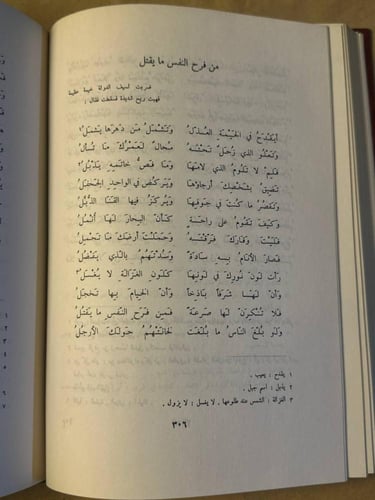 من فرح النفس ما يقتل
ضربت لسيف الدولة خيمة عظيمة
فهبت ريح شديدة فسقطت فقال :
أَيَقْدَحُ في الخَيْمَةِ العُذَّلُ وَتَشْمَلُ مَنْ دَهْرَهَا يَشْمَلُ ١
وَتَعْلُو الذي زُحَلٌ تَحْتَهُ مُحَالٌ لَعَمْرُكَ مَا تُسْأَلُ
فَلِمْ لا تَلُومُ الذي لامَهَا وَمَا فَصُّ خَاتِمِهِ يَذْبُلُ ٢
تَضِيقُ بشَخْصِكَ أَرْجَاؤُهَا وَيَرْكُضُ في الوَاحِدِ الجَحْفَلُ
وَتَقْصُرُ مَا كُنْتَ في جَوْفِهَا وَيُرْكَزُ فِيهَا القَنَا الذُّبَّلُ
وَكَيْفَ تَقُومُ عَلى رَاحَةٍ كَأَنَّ البِحَارَ لَهَا أَنْمُلُ
فَلَيْتَ وَقَارَكَ فَرَّقْتَهُ وَحَمَّلْتَ أَرْضَكَ مَا تَحْمِلُ
فَصَارَ الأَنَامُ بِهِ سَادَةً وَسُدْتَهُمُ بالذي يَفْضُلُ
رَأَتْ لَوْنَ نُورِكَ في لَوْنِهَا كَلَوْنِ الغَزَالَةِ لا يُغْسَلُ ٣
وَأَنَّ لَهَا شَرَفاً بَاذِخاً وَأَنَّ الخِيَامَ بِهَا تَخْجَلُ
فَلا تُنْكِرَنَّ لَهَا صَرْعَةً فَمِنْ فَرَحِ النَّفْسِ مَا يَقْتُلُ
وَلَوْ بُلِّغَ النَّاسُ مَا بُلِّغَتْ لَخَانَتْهُمُ حَوْلَكَ الأَرْجُلُ
١ يقدح : يعيب .
٢ يذبل : اسم جبل .
٣ الغزالة : الشمس عند طلوعها . لا يغسل : لا يزول .
٣٠٦